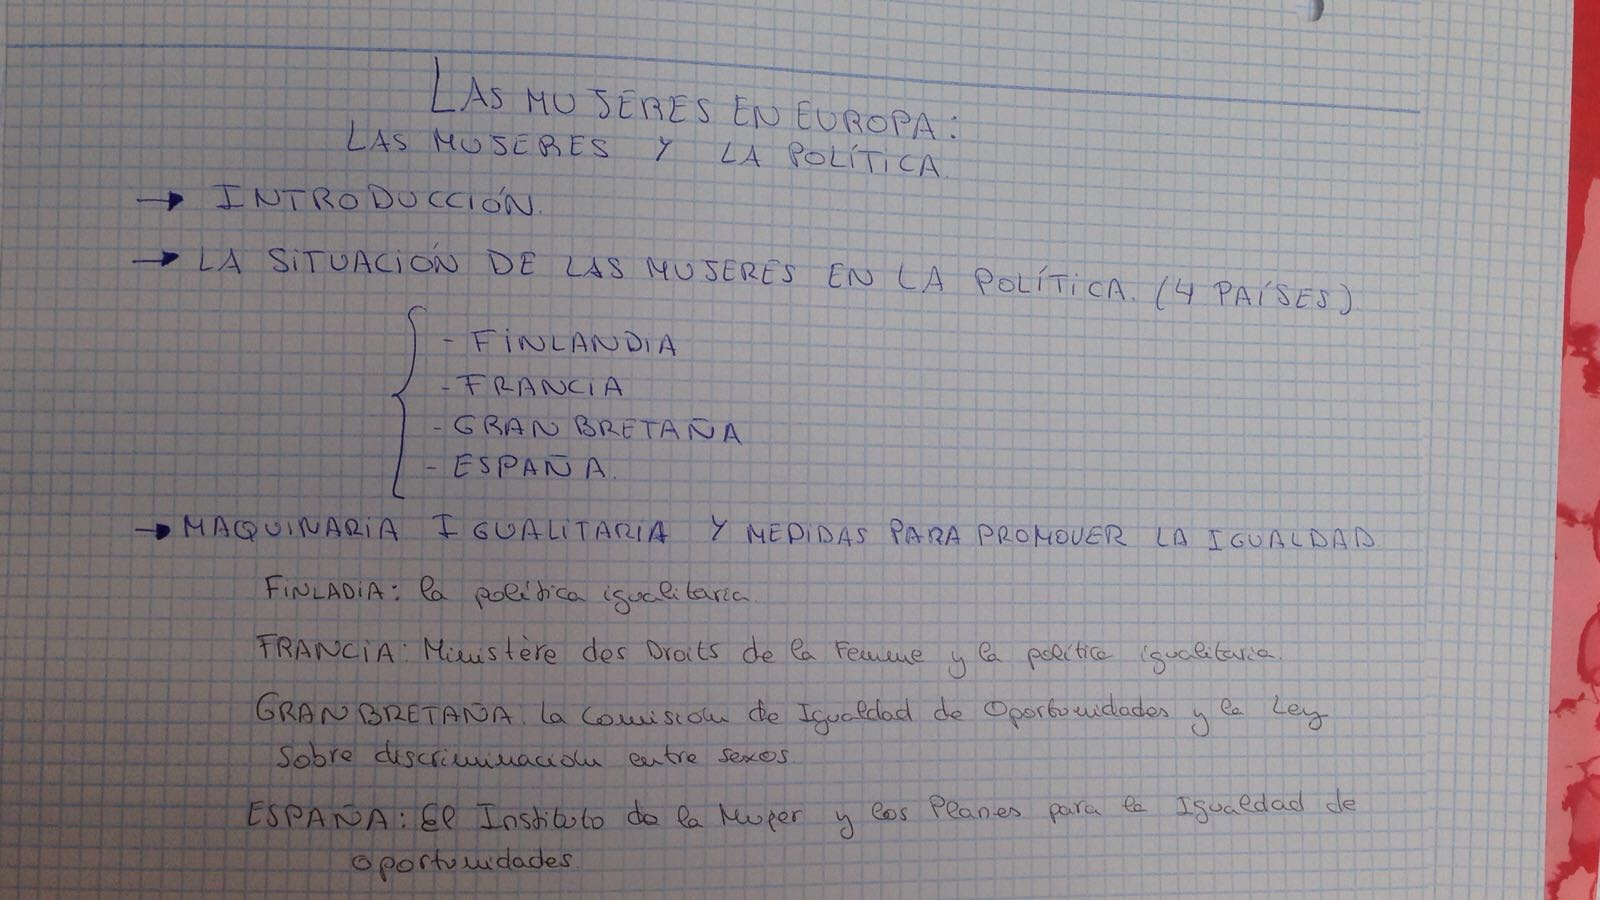 LAS MUJERES EN EUROPA:
LAS MUJERES Y LA POLÍTICA.
→ INTRODUCCIÓN.
→ LA SITUACIÓN DE LAS MUJERES EN LA POLÍTICA. (4 PAÍSES)
- FINLANDIA
- FRANCIA
- GRAN BRETAÑA
- ESPAÑA.
→ MAQUINARIA IGUALITARIA Y MEDIDAS PARA PROMOVER LA IGUALDAD
FINLADIA: la política igualitaria.
FRANCIA: Ministère des Droits de la Femme y la política igualitaria.
GRAN BRETAÑA: la Comision de Igualdad de Oportunidades y la Ley
sobre discriminacion entre sexos
ESPAÑA: El Instituto de la Mujer y los Planes para la Igualdad de
Oportunidades.